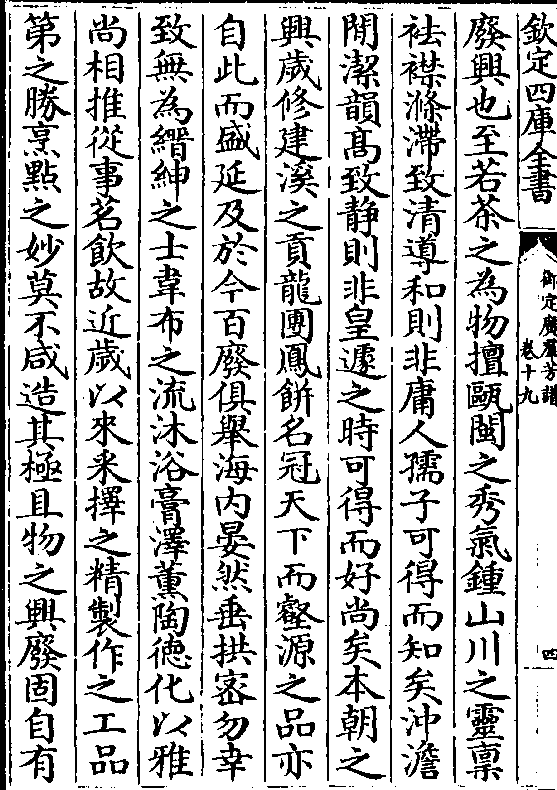 欽定四庫全書
御定廣羣芳譜
卷十九
四
廢興也至若茶之為物擅甌閩之秀氣鍾山川之靈稟
袪襟滌滯致清導和則非庸人孺子可得而知矣沖澹
閒潔韻髙致静則非皇遽之時可得而好尚矣本朝之
興歳修建溪之貢龍團鳳餅名冠天下而壑源之品亦
自此而盛延及於今百廢俱舉海内晏然垂拱宻勿幸
致無為縉紳之士韋布之流沐浴膏澤薰陶德化以雅
尚相推從事茗飲故近歳以來采擇之精製作之工品
第之勝烹點之妙莫不咸造其極且物之興廢固自有